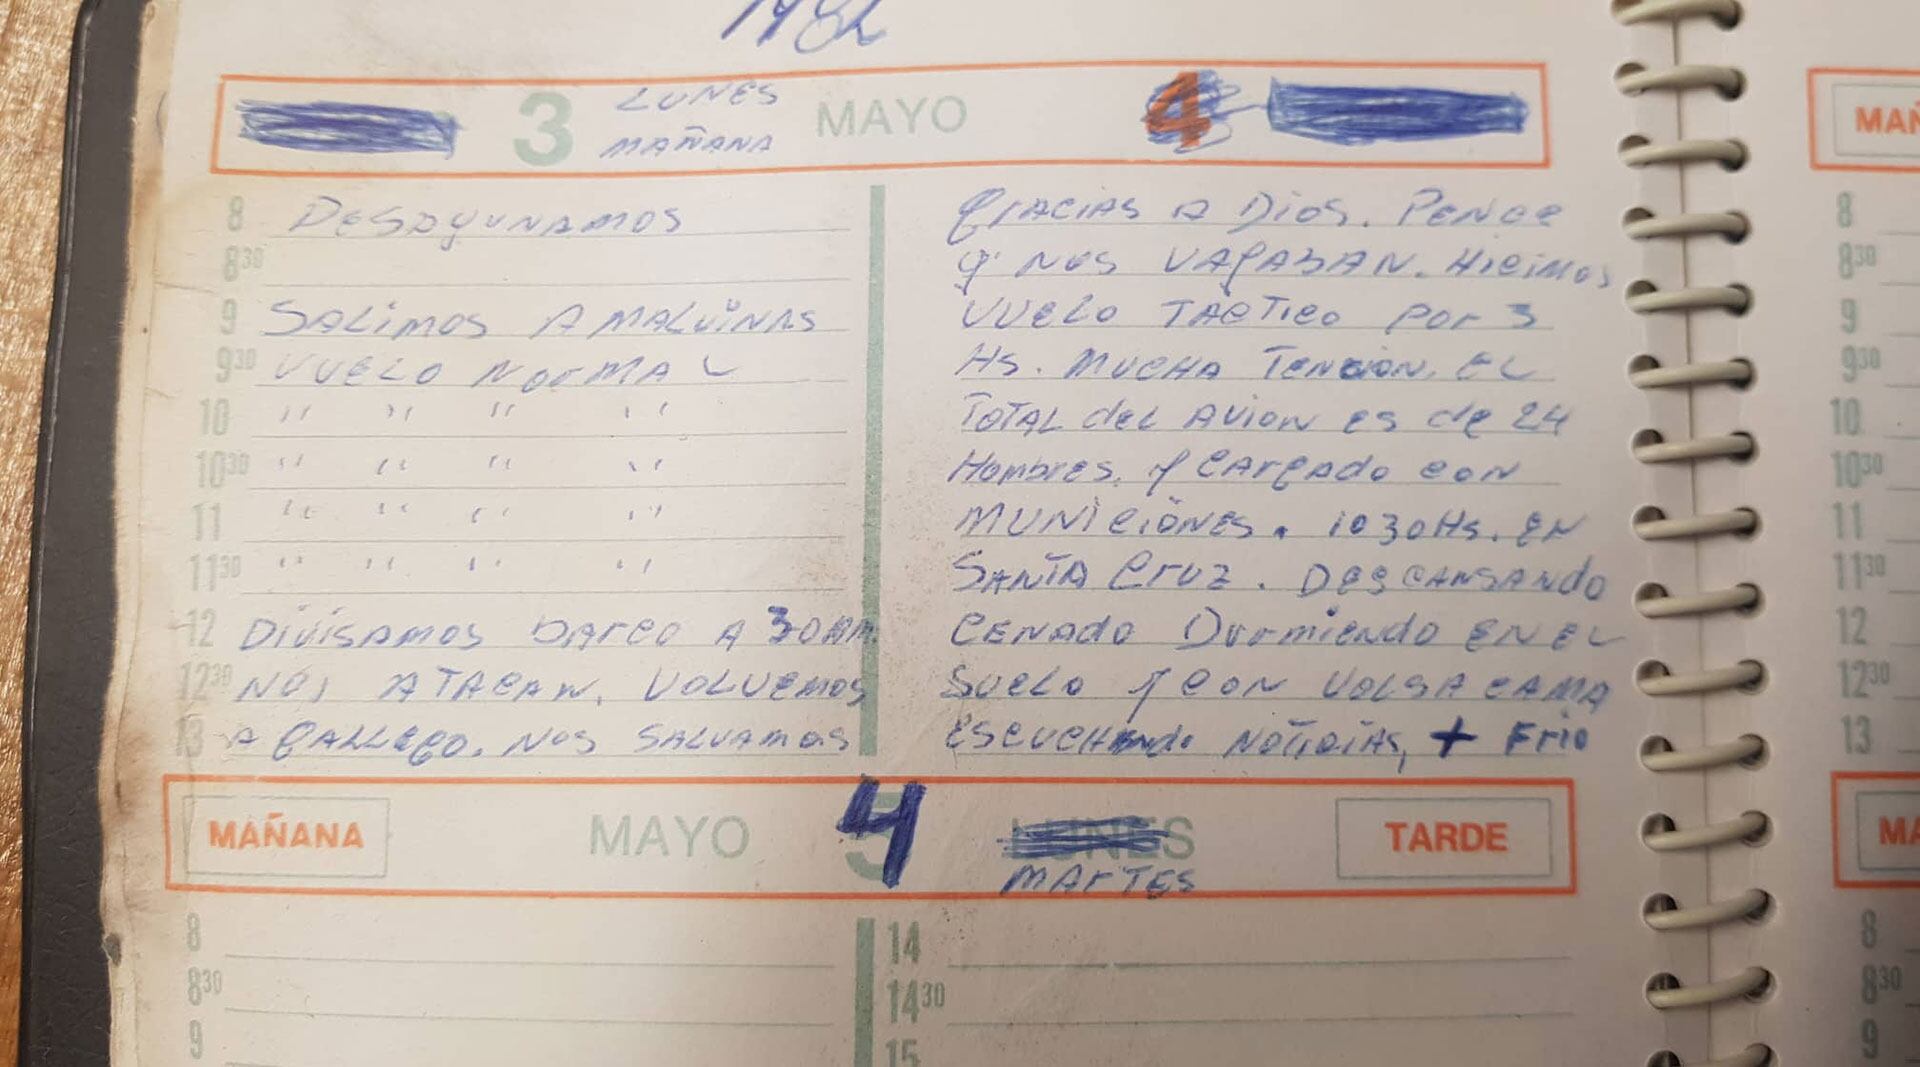 1982
3 LUNES MAYO 4
MAÑANA
8 DESAYUNAMOS
8 30
9 SALIMOS A MALVINAS
9 30 VUELO NORMAL
10 " " " "
10 30 " " " "
11 " " " "
11 30 " " " "
12 DIVISAMOS BARCO A 30 AM.
12 30 NOS ATACAN. VOLVEMOS
13 A GALLEGO. NOS SALVAMOS
GRACIAS A DIOS. PENCE
q' NOS VAGABAN. HICIMOS
VUELO TACTICO POR 3
HS. MUCHA TENCION. EL
TOTAL del AVION ES de 24
HOMBRES. Y CARGADO CON
MUNICIONES. 1030 HS. EN
SANTA CRUZ. DESCANSANDO
CENADO DURMIENDO EN EL
SUELO Y CON VOLSA CAMA
ESCUCHANDO NOTICIAS, + FRIO
MAÑANA MAYO 4 LUNES TARDE
MARTES
8 14
8 30 14 30
9 15
MAÑ
8
8 30
9
9 30
10
10 30
11
11 30
12
12 30
13
MA
8
8 30
9